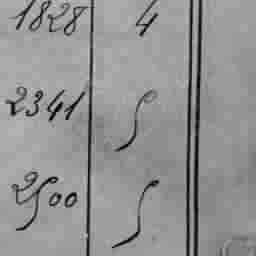 1828 4
2341 5
2500 5